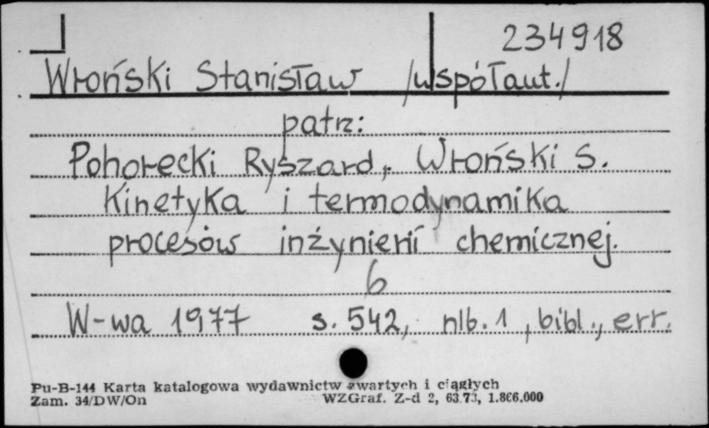 234918
Wroński Stanisław /współaut./
patrz:
Pohorecki Ryszard, Wroński S.
Kinetyka i termodynamika
procesów inżynierii chemicznej.
6
W-wa 1977 s. 542, nlb. 1, bibl., err.
Pu-B-144 Karta katalogowa wydawnictw zwartych i ciągłych
Zam. 34/DW/On WZGraf. Z-d 2, 63.73, 1.866.000